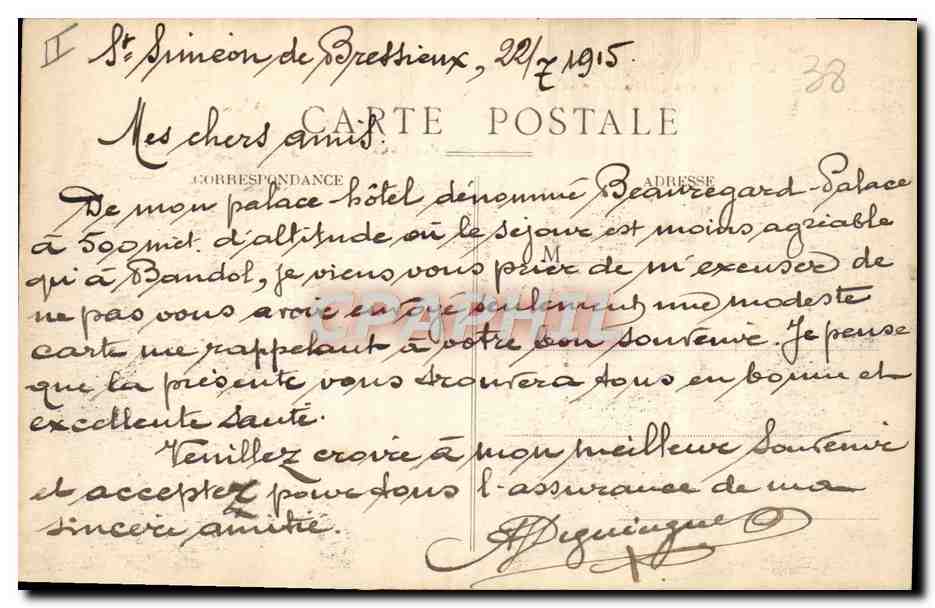 II
St. Siméon de Bressieux, 22/7 1915.
38
CARTE POSTALE
Mes chers amis.
CORRESPONDANCE
ADRESSE
De mon palace-hôtel dénommé Beauregard-Palace
à 500 mèt. d'altitude où le séjour est moins agréable
qu'à Bandol, je viens vous prier de m'excuser de
M
ne pas vous avoir envoyé seulement une modeste
CPAPHIL
carte me rappelant à votre bon souvenir. Je pense
que la présente vous trouvera tous en bonne et
excellente santé.
Veuillez croire à mon meilleur souvenir
et acceptez pour tous l'assurance de ma
sincère amitié.